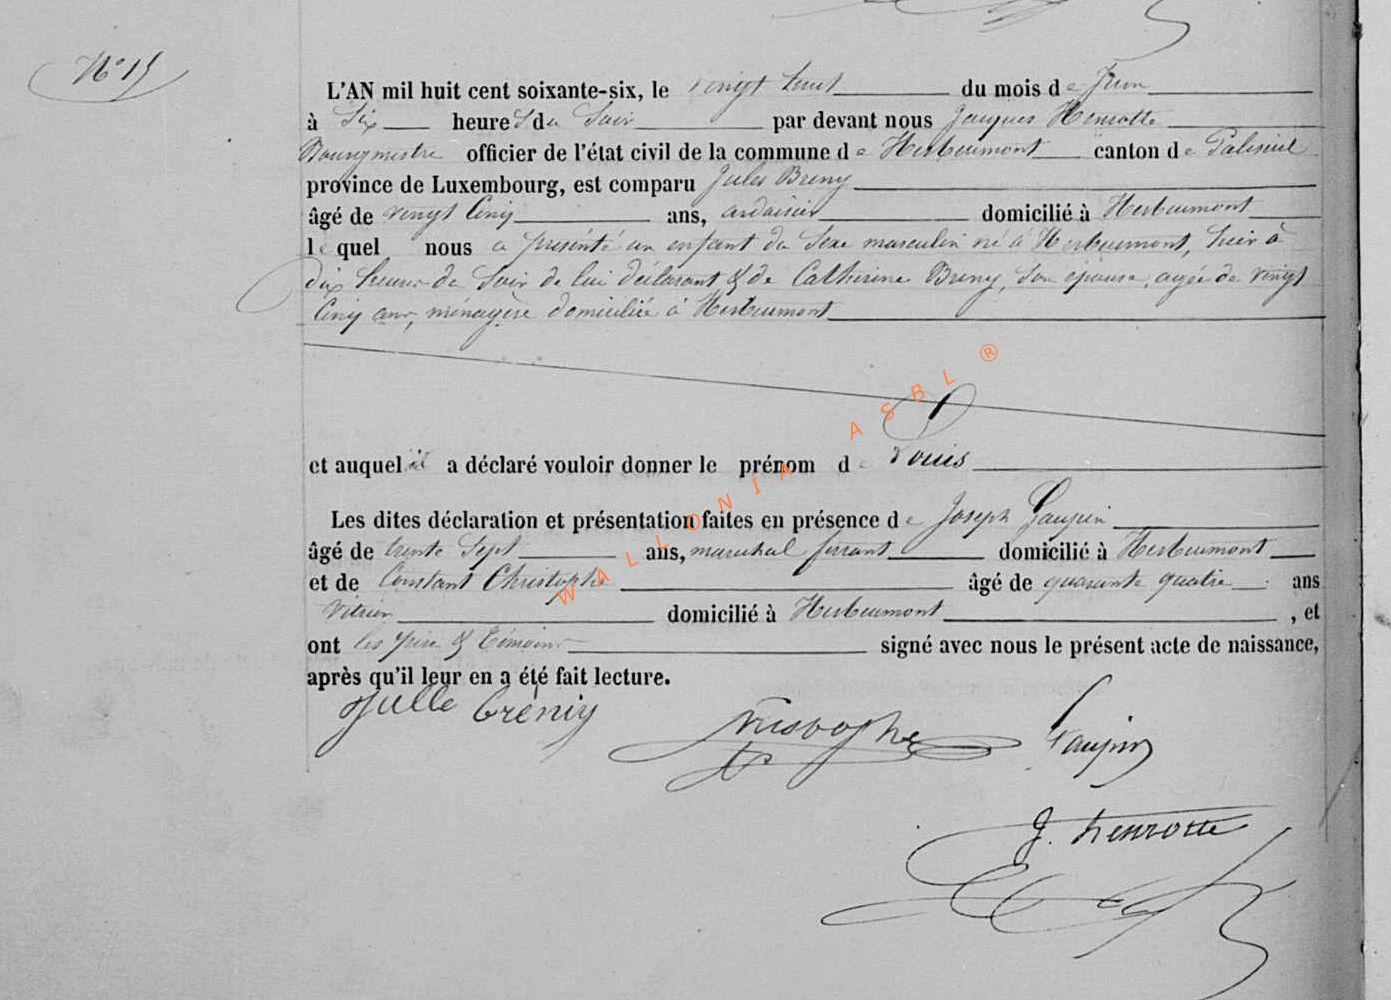 N° 15
L'AN mil huit cent soixante-six, le vingt huit du mois de Juin
à Six heures du Soir par devant nous Jacques Henrotte
Bourgmestre officier de l'état civil de la commune de Herbeumont canton de Paliseul
province de Luxembourg, est comparu Jules Breny
âgé de vingt Cinq ans, ardoisier domicilié à Herbeumont
lequel nous a présenté un enfant du Sexe masculin né à Herbeumont, hier à
dix heures du Soir de lui déclarant & de Catherine Breny, Son épouse, agée de vingt
Cinq ans, ménagère domiciliée à Herbeumont
et auquel il a déclaré vouloir donner le prénom de Louis
Les dites déclaration et présentation faites en présence de Joseph Gaupin
âgé de trente Sept ans, maréchal ferrant domicilié à Herbeumont
et de Constant Christophe âgé de quarante quatre ans
vitrier domicilié à Herbeumont, et
ont les père & témoins signé avec nous le présent acte de naissance,
après qu'il leur en a été fait lecture.
Julle Bréniy
Gaupin
J. henrotte
WALLONIA ASBL ®